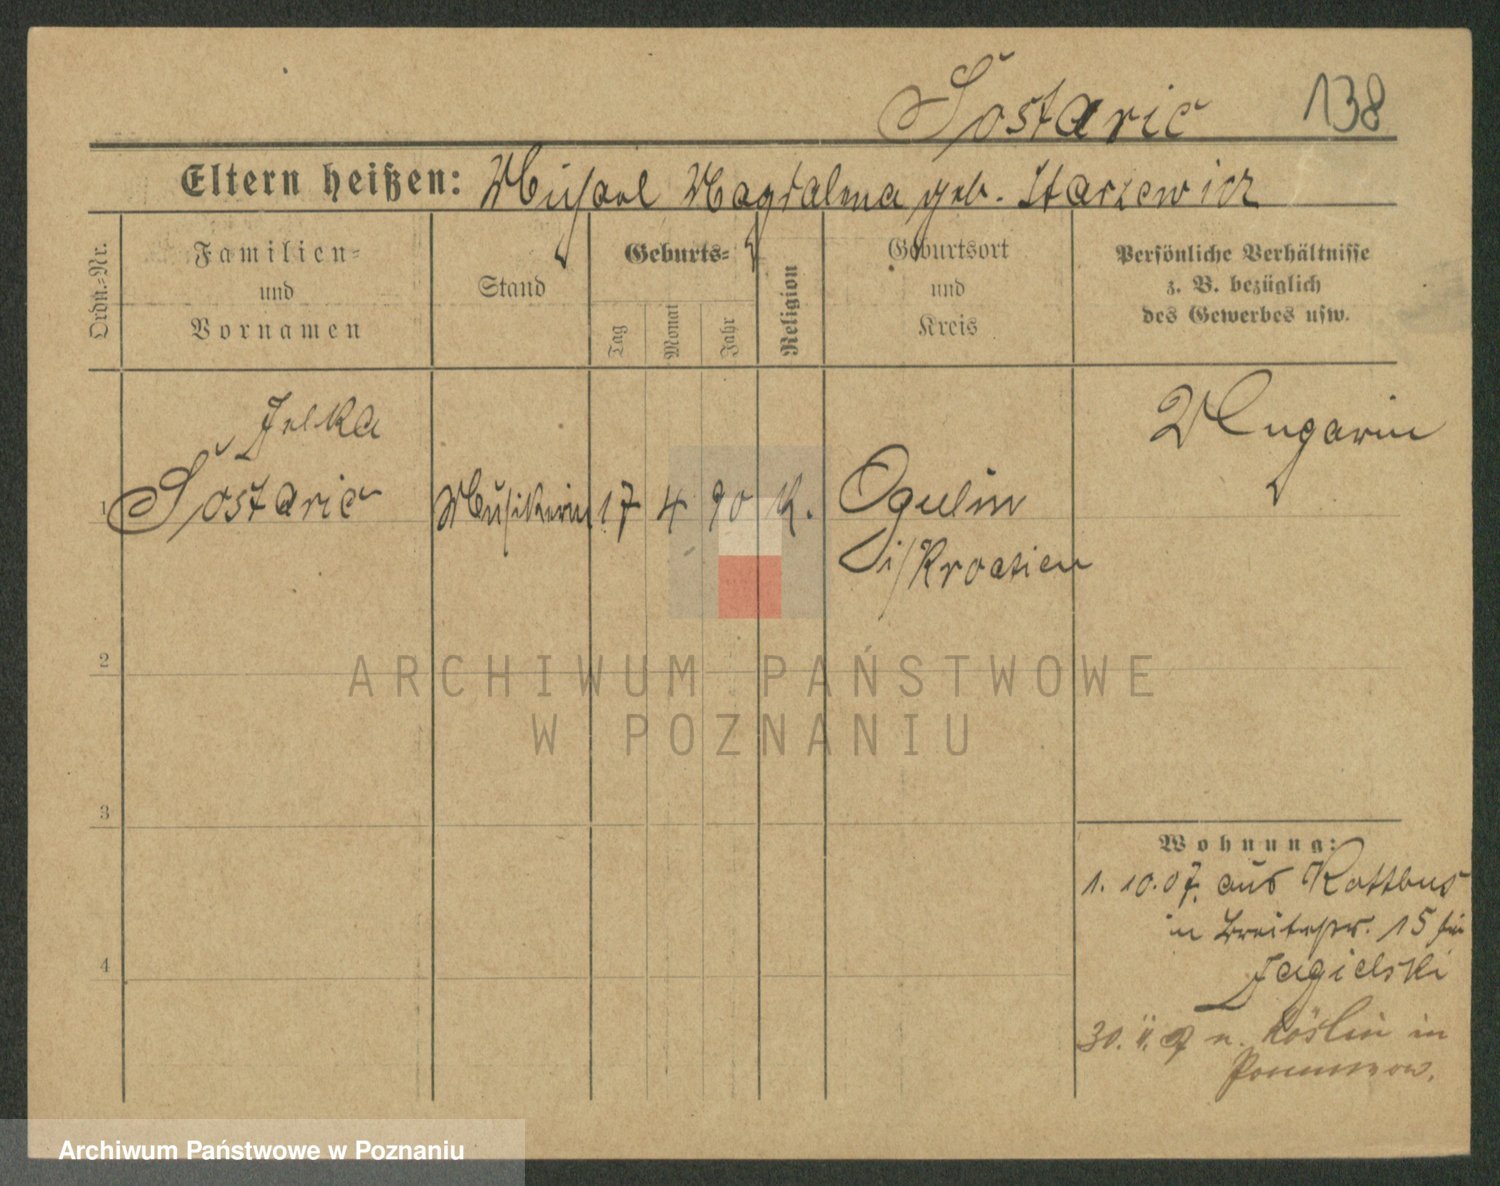 Šostaric 138
Eltern heißen: Michael Magdalena geb. Starzewicz
Ordn.-Nr.
Familien-
und
Vornamen
Stand
Geburts-
Tag
Monat
Jahr
Religion
Geburtsort
und
Kreis
Persönliche Verhältnisse
z. B. bezüglich
des Gewerbes usw.
Jelka
1 Šostaric Musikerin 17 4 90 K. Ogulin
i/Kroatien
Ungarin
2
3
4
Wohnung:
1. 10. 07. aus Kottbus
in Breitestr. 15 bei
Jagielski
30. 11. 07 n. Köslin in
Pommern.
ARCHIWUM PAŃSTWOWE
W POZNANIU
Archiwum Państwowe w Poznaniu